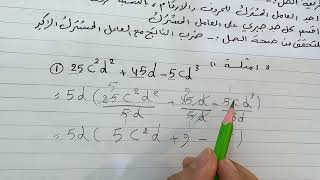 اقسم كل حد جبري على العامل المشترك
للتحقق من صحة الحل :- ضرب الناتج مع العامل المشترك الاكبر
" امثلة "
① 25c²d² + 45d - 5cd³
= 5d ( 25c²d² / 5d + 45d / 5d - 5cd³ / 5d )
= 5d ( 5c²d + 9 -